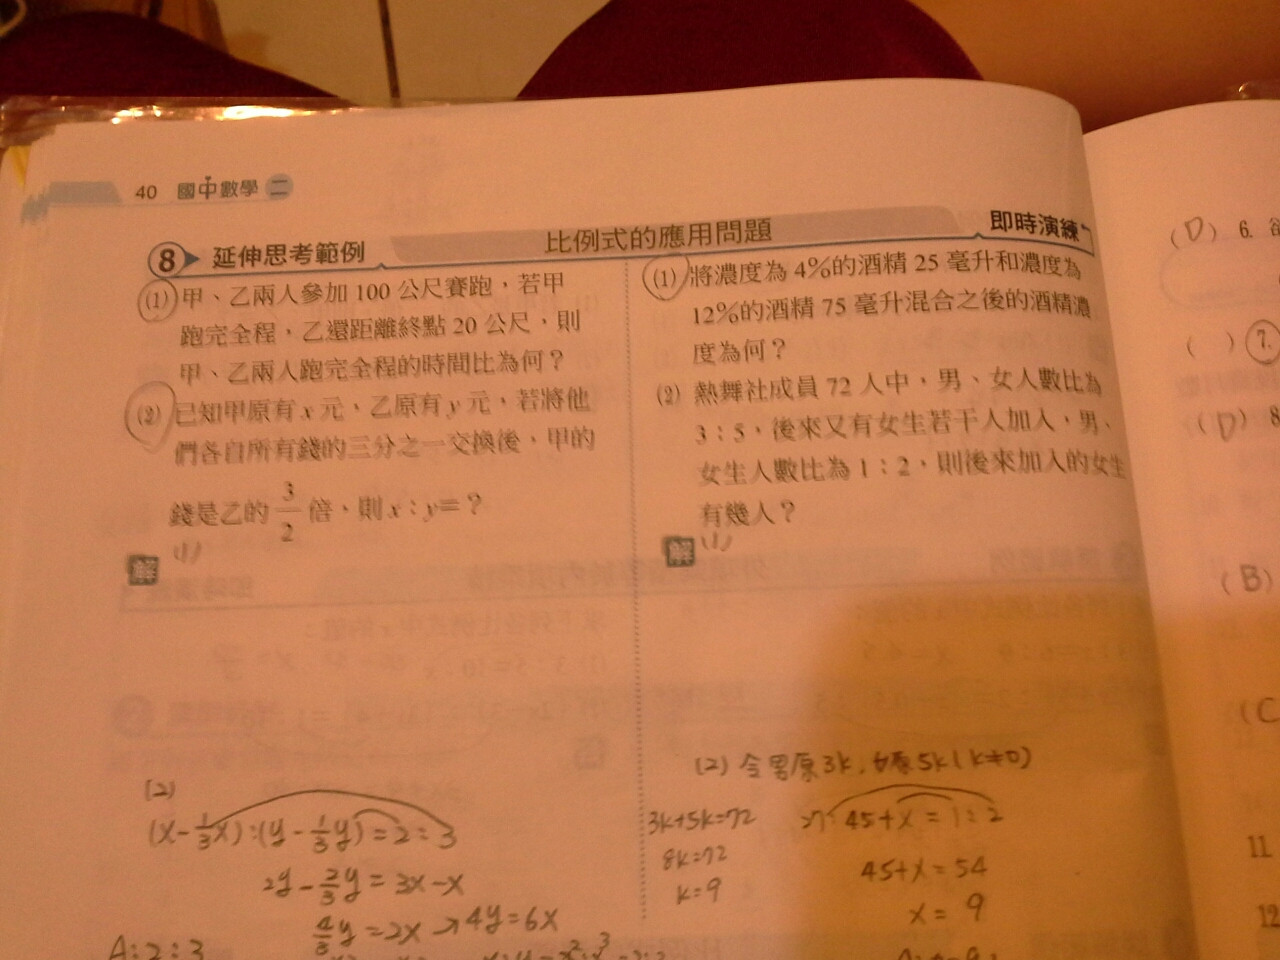 40 國中數學 二
8 延伸思考範例
比例式的應用問題
即時演練
(1) 甲、乙兩人參加 100 公尺賽跑，若甲
跑完全程，乙還距離終點 20 公尺，則
甲、乙兩人跑完全程的時間比為何？
(2) 已知甲原有 x 元，乙原有 y 元，若將他
們各自所有錢的三分之一交換後，甲的
錢是乙的 3/2 倍，則 x：y＝？
解
(1)
(2)
(x-1/3x):(y-1/3y)=2:3
2y-2/3y=3x-x
4/3y=2x→4y=6x
A:2:3
(1) 將濃度為 4%的酒精 25 毫升和濃度為
12%的酒精 75 毫升混合之後的酒精濃
度為何？
(2) 熱舞社成員 72 人中，男、女人數比為
3：5，後來又有女生若干人加入，男、
女生人數比為 1：2，則後來加入的女生
有幾人？
解
(1)
(2) 令男原3k,女原5k(k≠0)
3k+5k=72
8k=72
k=9
27:45+x=1:2
45+x=54
x=9
(D) 6.
( ) 7.
(D) 8
(B)
(C
11
12